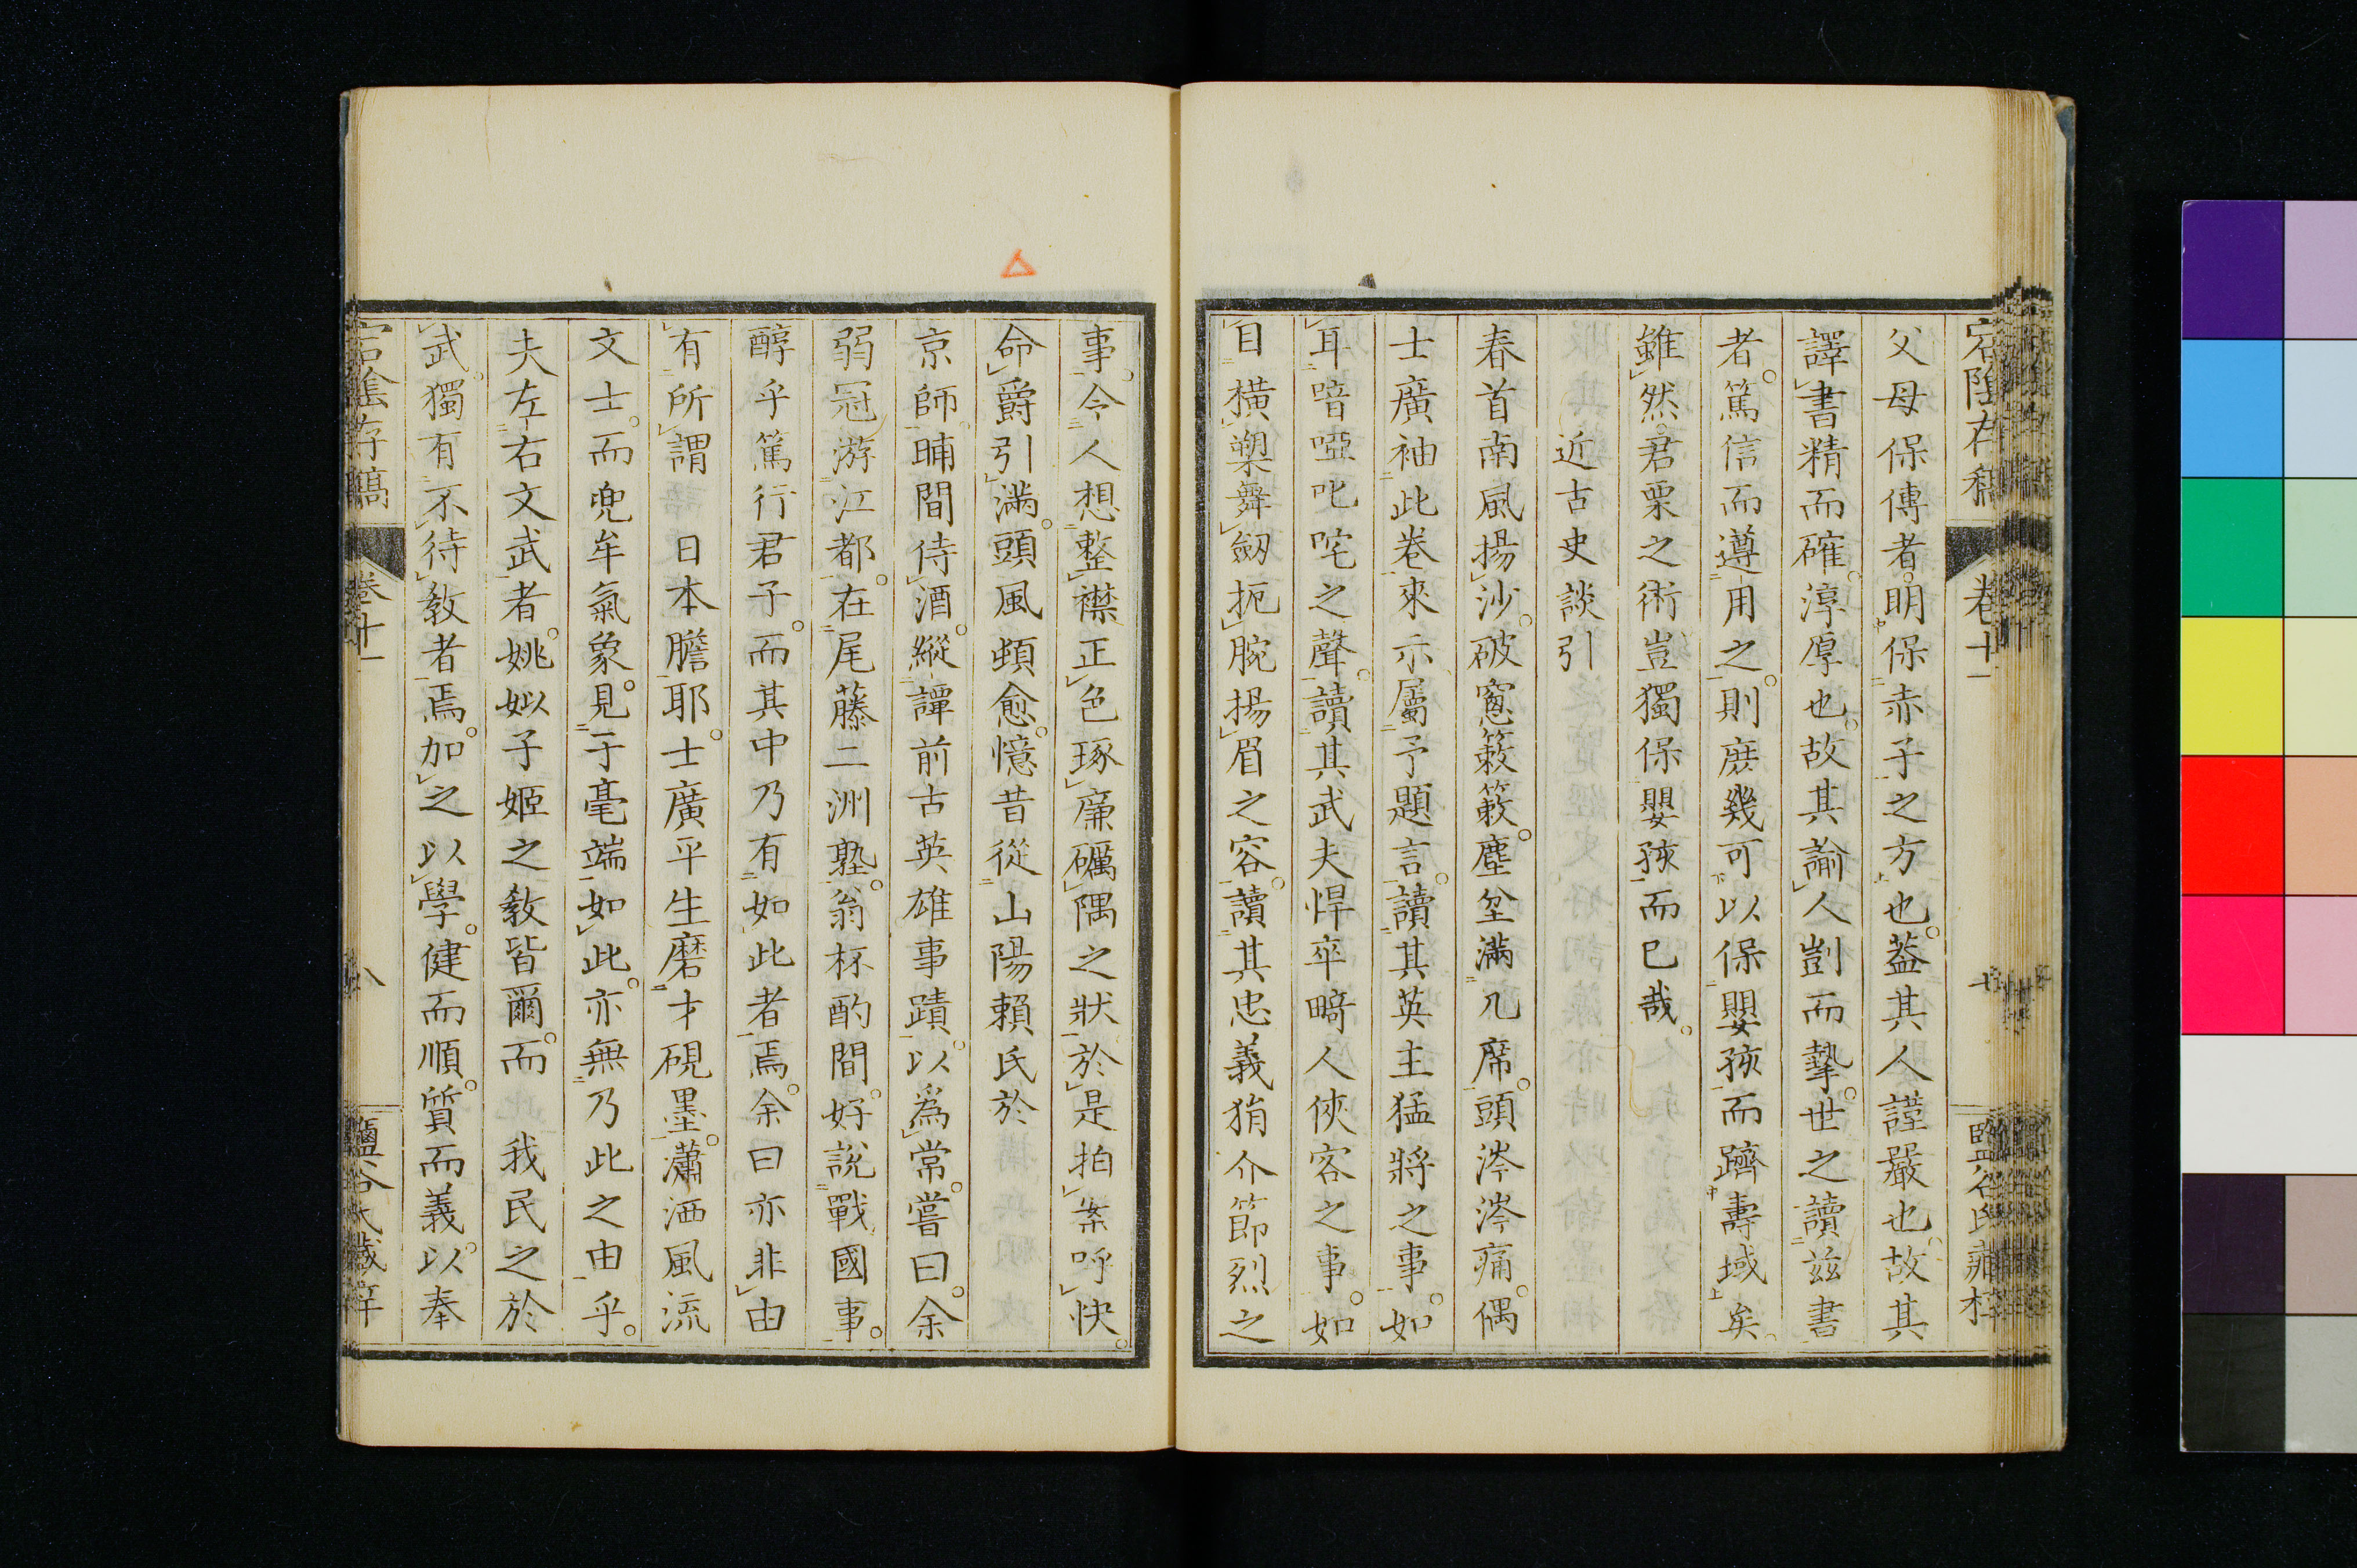 宕陰存稿 卷十一 十 鹽谷氏藏梓
父母保傅者。明保赤子之方也。葢其人謹嚴也。故其
譯書精而確。淳厚也。故其諭人剴而摯。世之讀兹書
者。篤信而遵用之。則庶幾可以保嬰孩而躋壽域矣。
雖然。君栗之術豈獨保嬰孩而已哉。
近古史談引
春首南風揚沙。破窻簌簌。塵坌滿几席。頭涔涔痛。偶
士廣袖此卷來示屬予題言。讀其英主猛將之事。如
耳喑啞叱咤之聲。讀其武夫悍卒畸人俠客之事。如
目橫槊舞劒扼腕揚眉之容。讀其忠義狷介節烈之
事。令人想整襟正色琢廉礪隅之狀。於是拍案呼快。
命爵引滿。頭風頓愈。憶昔從山陽賴氏於
京師。晡間侍酒。縱譚前古英雄事蹟。以爲常。嘗曰。余
弱冠游江都。在尾藤二洲塾。翁杯酌間。好說戰國事。
醇乎篤行君子。而其中乃有如此者焉。余曰亦非由
有所謂 日本膽耶。士廣平生磨才硯墨。瀟洒風流
文士。而兜牟氣象。見于毫端如此。亦無乃此之由乎。
夫左右文武者。姚姒子姬之敎皆爾。而 我民之於
武。獨有不待敎者焉。加之以學。健而順。質而義。以奉
宕陰存稿 卷十一 八 鹽谷氏藏梓